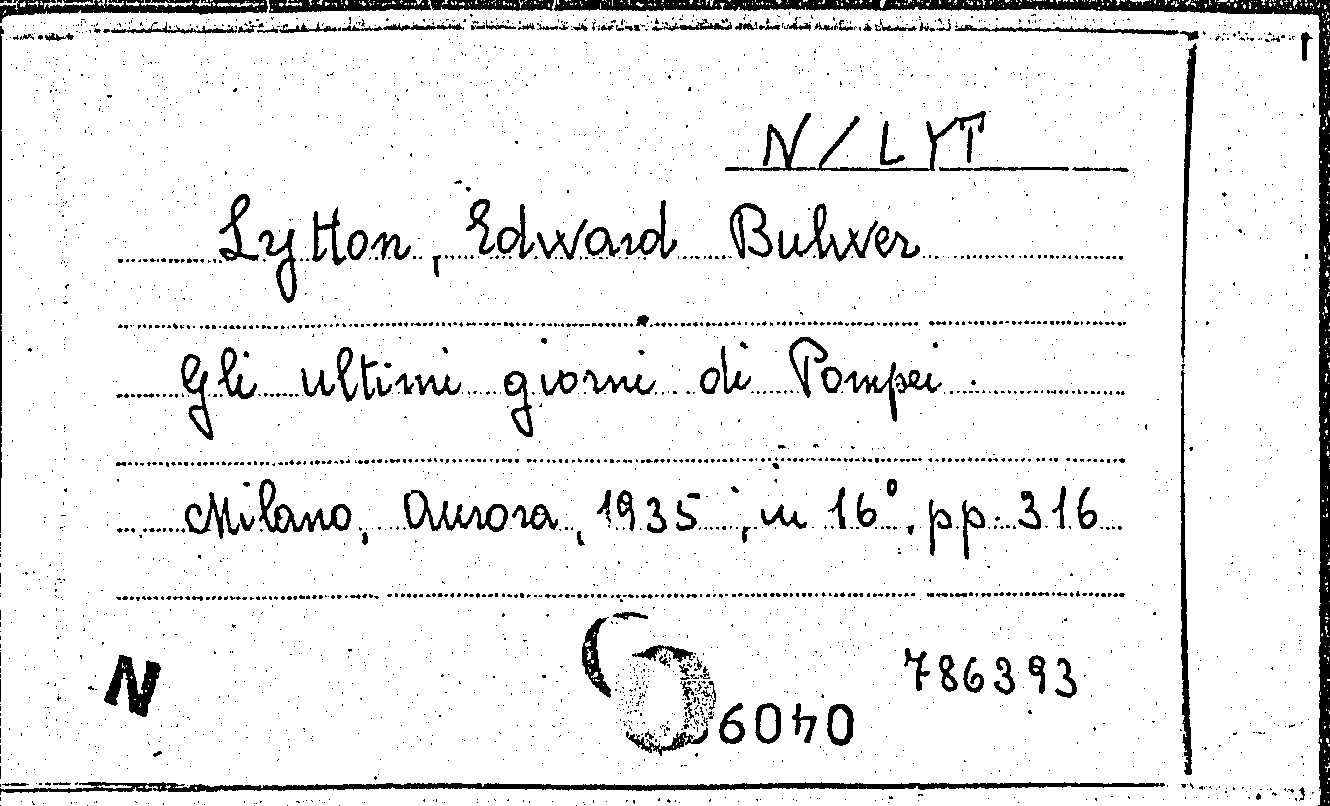 N/LYT
Lytton, Edward Bulwer
Gli ultimi giorni di Pompei.
Milano, Aurora, 1935, in 16°, pp. 316
786393
N